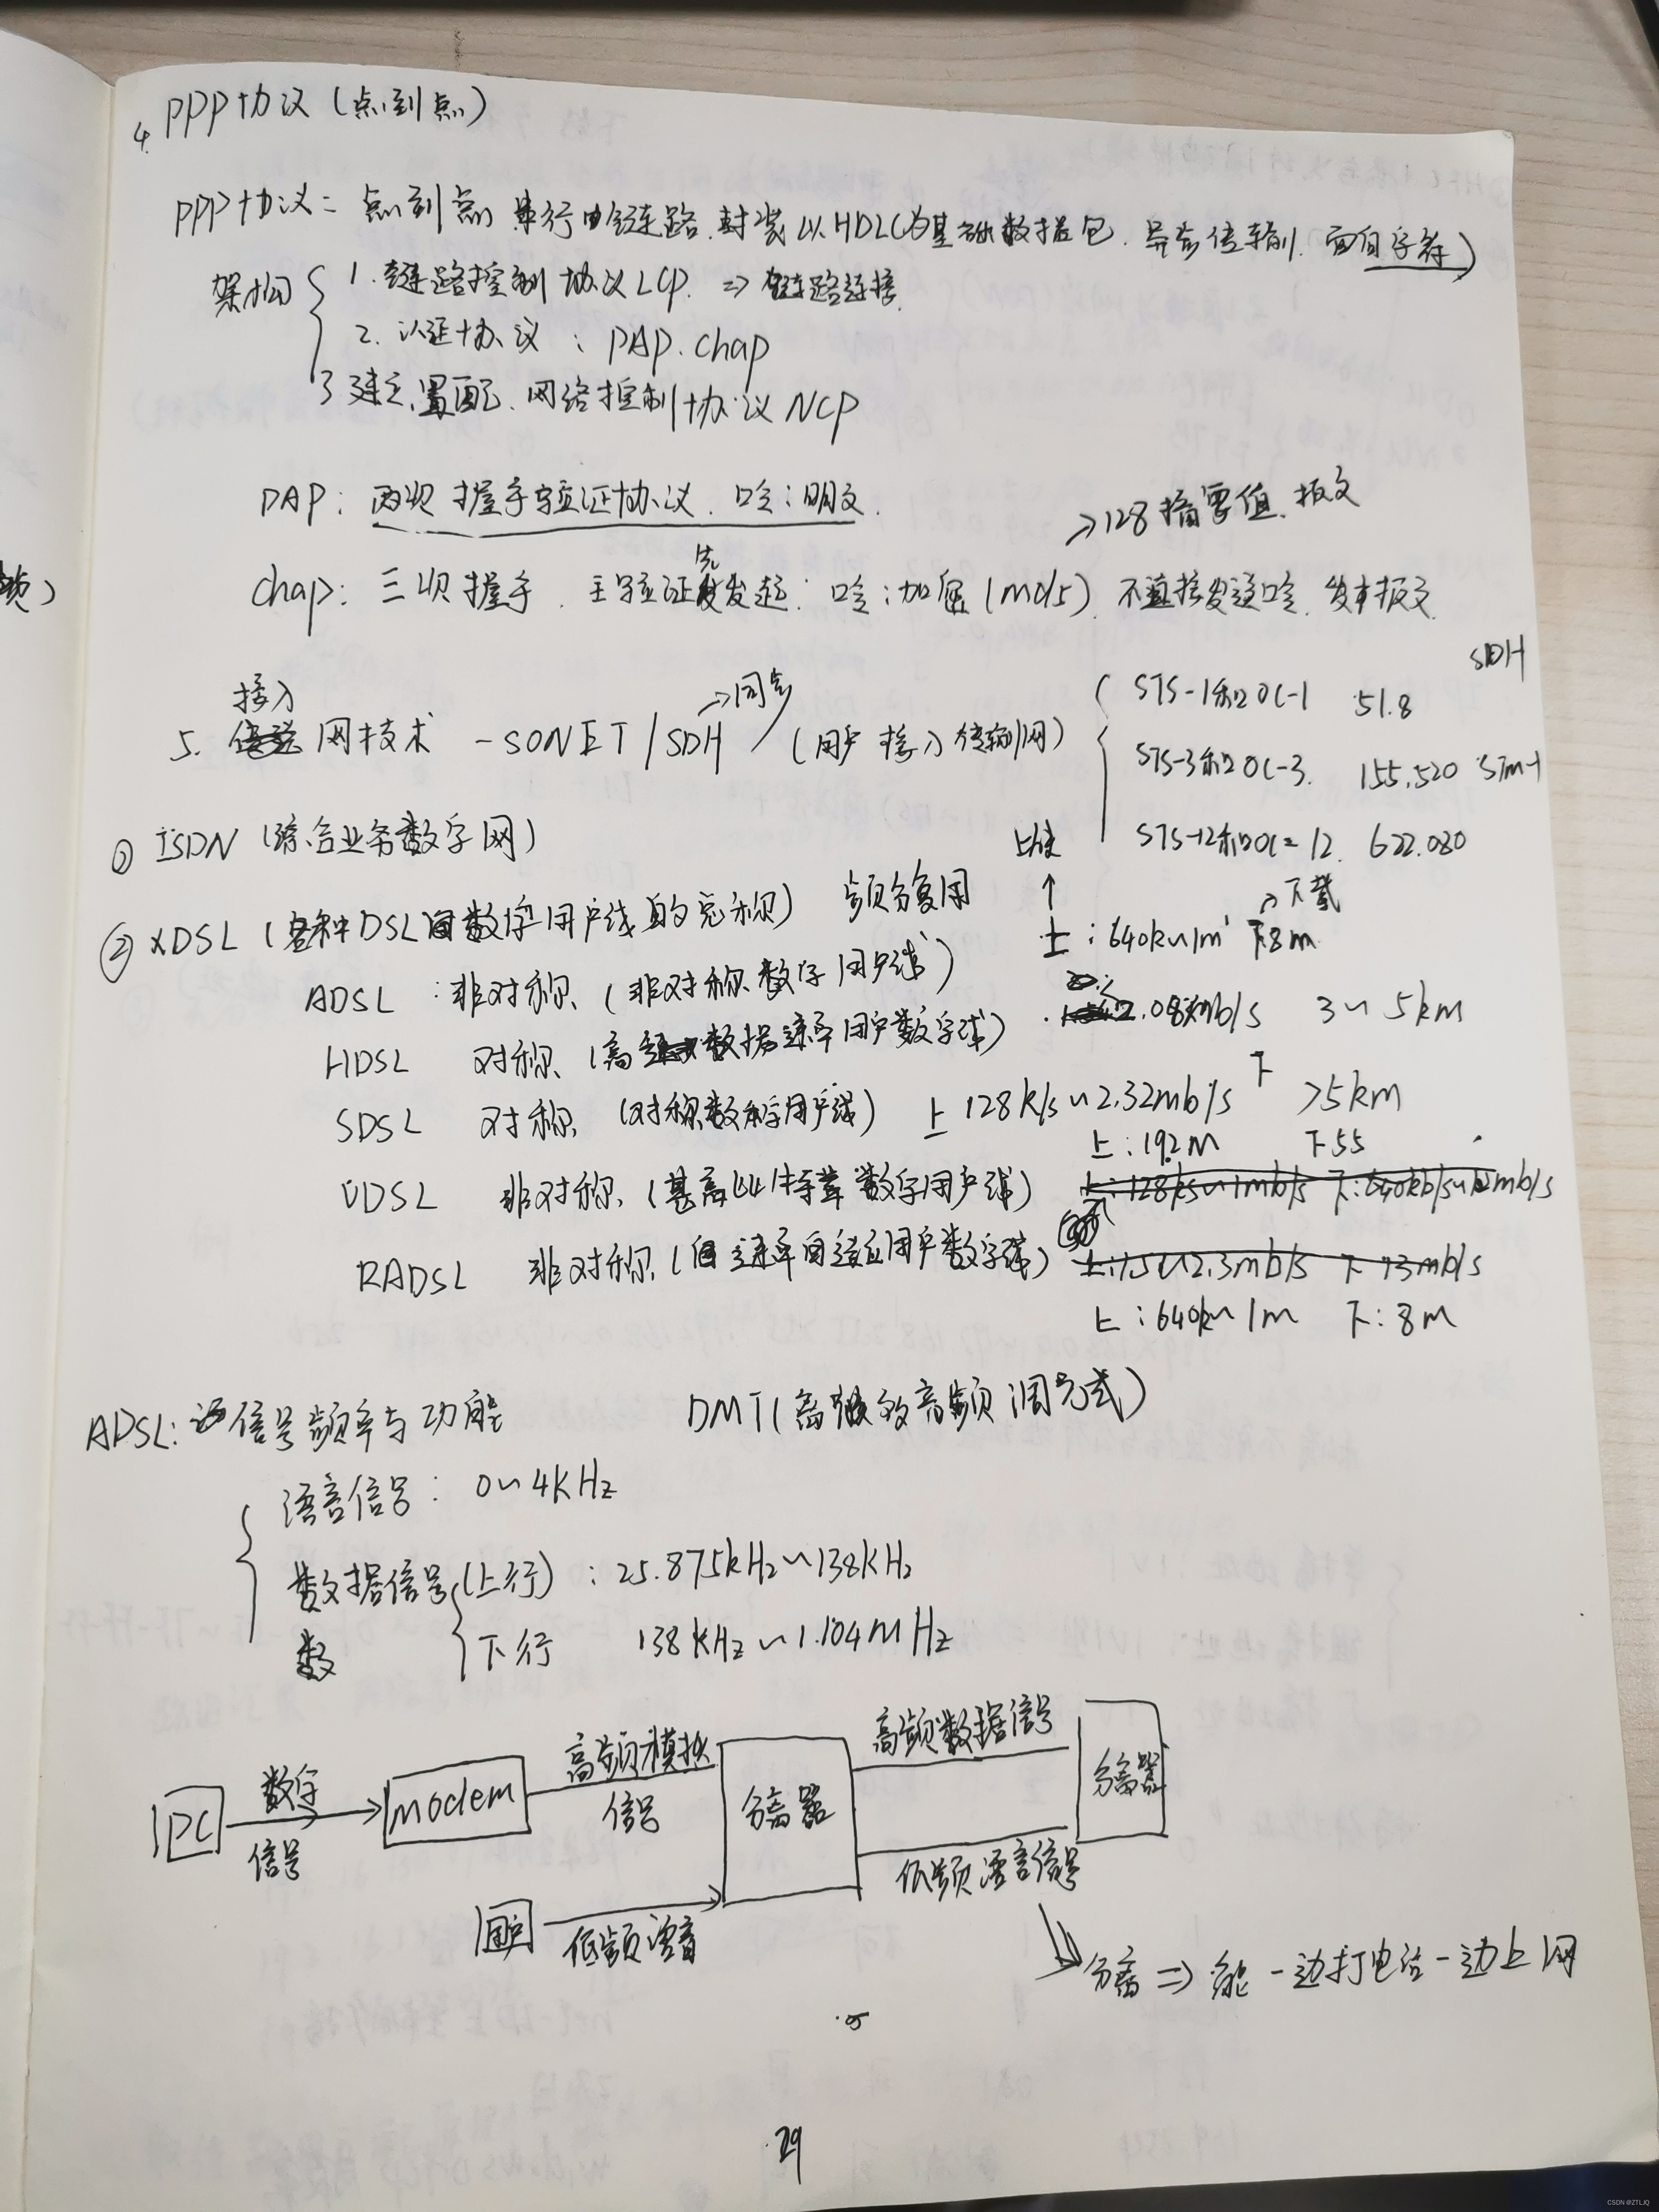 4. PPP协议(点到点)
PPP协议: 点到点 串行 链路.封装以HDLC为基础数据包.异步传输.面向字符)
架构 1.链路控制协议LCP. => 链路连接.
2.认证协议: PAP.chap
3 建立,置配.网络控制协议NCP
PAP: 两次握手验证协议. 口令:明文.
→128摘要值.报文
chap: 三次握手. 主验证先发起: 口令:加密(md5).不直接发送口令. 发 报文.
SDH
接入
5. 网技术 - SONET/SDH →同步 (用户接入传输网)
STS-1和OC-1 51.8
STS-3和OC-3. 155.520 STM-1
STS-12和OC-12. 622.080
① ISDN (综合业务数字网)
② XDSL (各种DSL 数字用户线的总称) 频分复用
上传 ↑ →下载
上:640k~1m 下8m
ADSL :非对称.(非对称数字用户线)
HDSL 对称.(高 数据速率用户数字线) 3~5km
SDSL 对称.(对称数字用户线) 上128k/s~2.32mb/s 下 >5km
上:19.2M 下55
VDSL 非对称.(甚高 比特率数字用户线) 上:128k/s~1mb/s 下:640kb/s~12mb/s
RADSL 非对称.( 速率自适应用户数字线) 上:1.5~2.3mb/s 下 13mb/s
上:640k~1m 下:8m
ADSL: 信号频率与功能 DMT(离 效高频调 式)
语音信号: 0~4KHz
数据信号(上行):25.875kHz~138KHz
数 下行 138KHz~1.104MHz
PC 数字信号 modem 高频模拟信号 分离器 高频数据信号 分离器
低频语音信号
低频语音
分离=>能一边打电话一边上网
29
CSDN @ZTLJQ